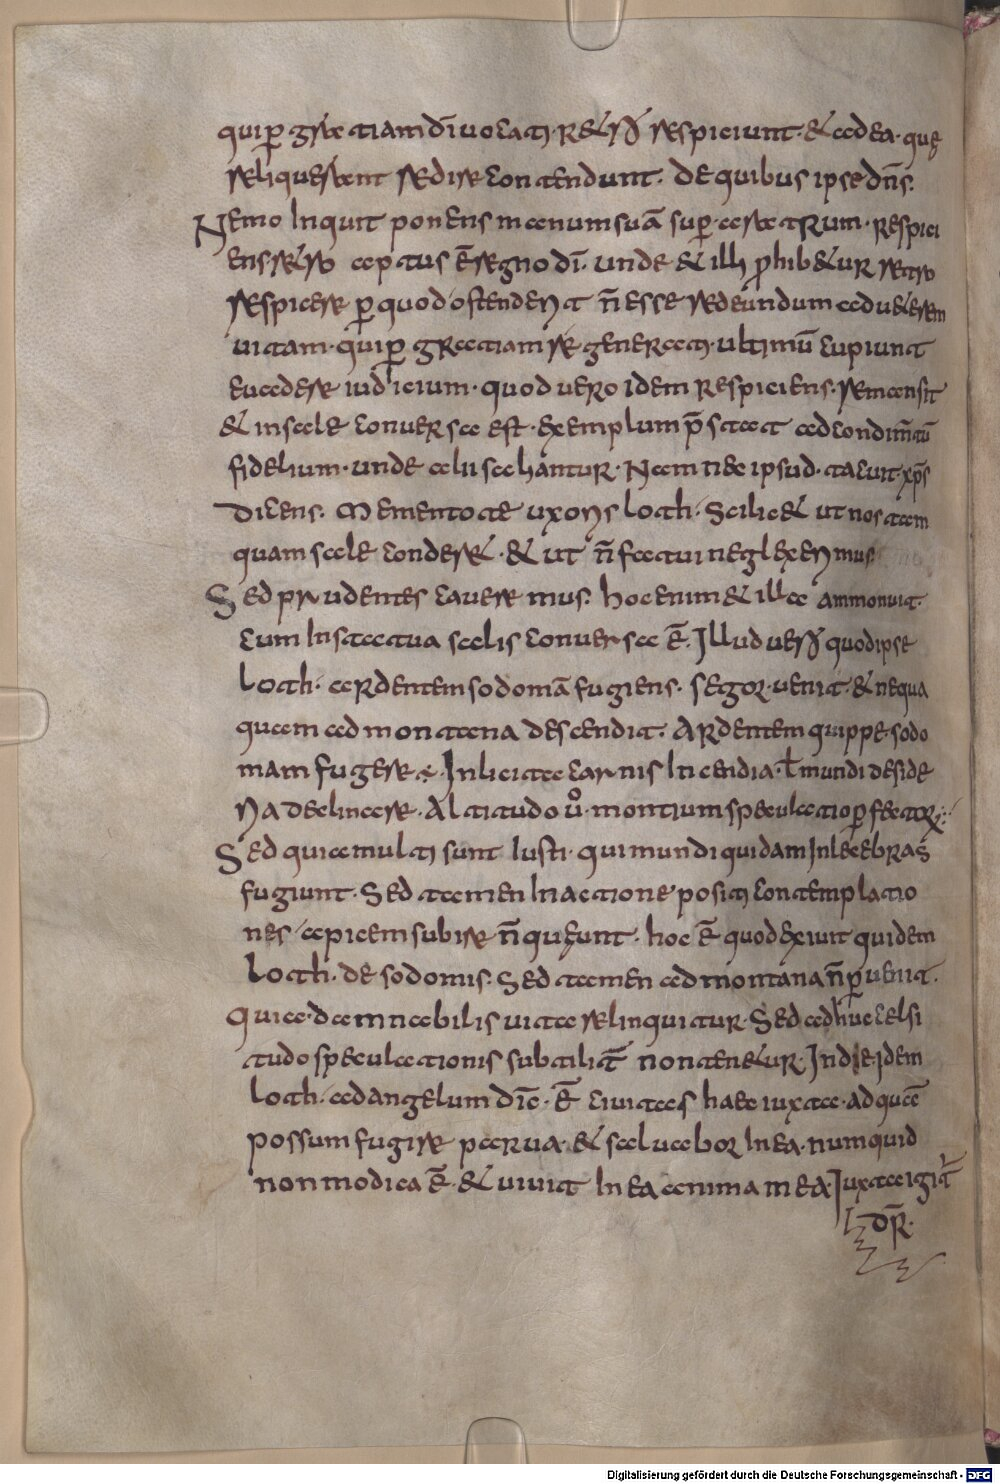 qui p̄ gratiam dī uocati· retro respiciunt· & ad ea· que
reliquerant redire contendunt· De quibus ipse dn̄s·
Nemo inquit ponens manum suā sup̄ aratrum· respici
ens retro aptus ē regno dī· unde & illi ꝓhib&ur retro
respicere p̄ quod ostenderit n̄ esse redeundum ad ueterem
uitam· qui p̄ gratiam regenerati· ultimū cupiunt
euadere iudicium· quod uero idem respiciens· remansit
& in sale conuersa est· exemplum p̄stat ad condim̄tū
fidelium· unde alii sachantur· Nam n ec ipsud· tacuit· xp̄s
dicens· Mementote uxoris loth· Scilic& ut nos tam
quam sale conderet· & ut n̄ fatui neglexerimus
Sed prudentes caueremus· hoc enim & illa ammonuit·
cum in statua salis conuersa ē· Illud uero quod ipse
loth· ardentem sodomā fugiens· segor· uenit· & nequa
quam ad montana descendit· Ardentem quippe sodo
mam fugere ÷ Inlicita carnis incendia· ł mundi deside
ria declinare· Altitudo ůͦ· montium speculatio p̄fector·
Sed quia multi sunt iusti· qui mundi quidam Inlecebras
fugiunt· Sed tamen In actione positi contemplatio
nes apicem subire n̄ queunt· hoc ē quod exiuit quidem
loth· de sodomis· Sed tamen ad montana n̄ p̄uenit·
Quia damnabilis uita relinquitur· Sed adhuc celsi
tudo speculationis subtilit̄ non ten&ur· Inde Idem
loth· ad angelum dīc· Ē ciuitas haec iuxta· ad quā
possum fugire parua· & saluabor In ea· numquid
non modica ē· & uiuit In ea anima mea· Iuxta igit̄
dr̄·
Digitalisierung gefördert durch die Deutsche Forschungsgemeinschaft - DFG